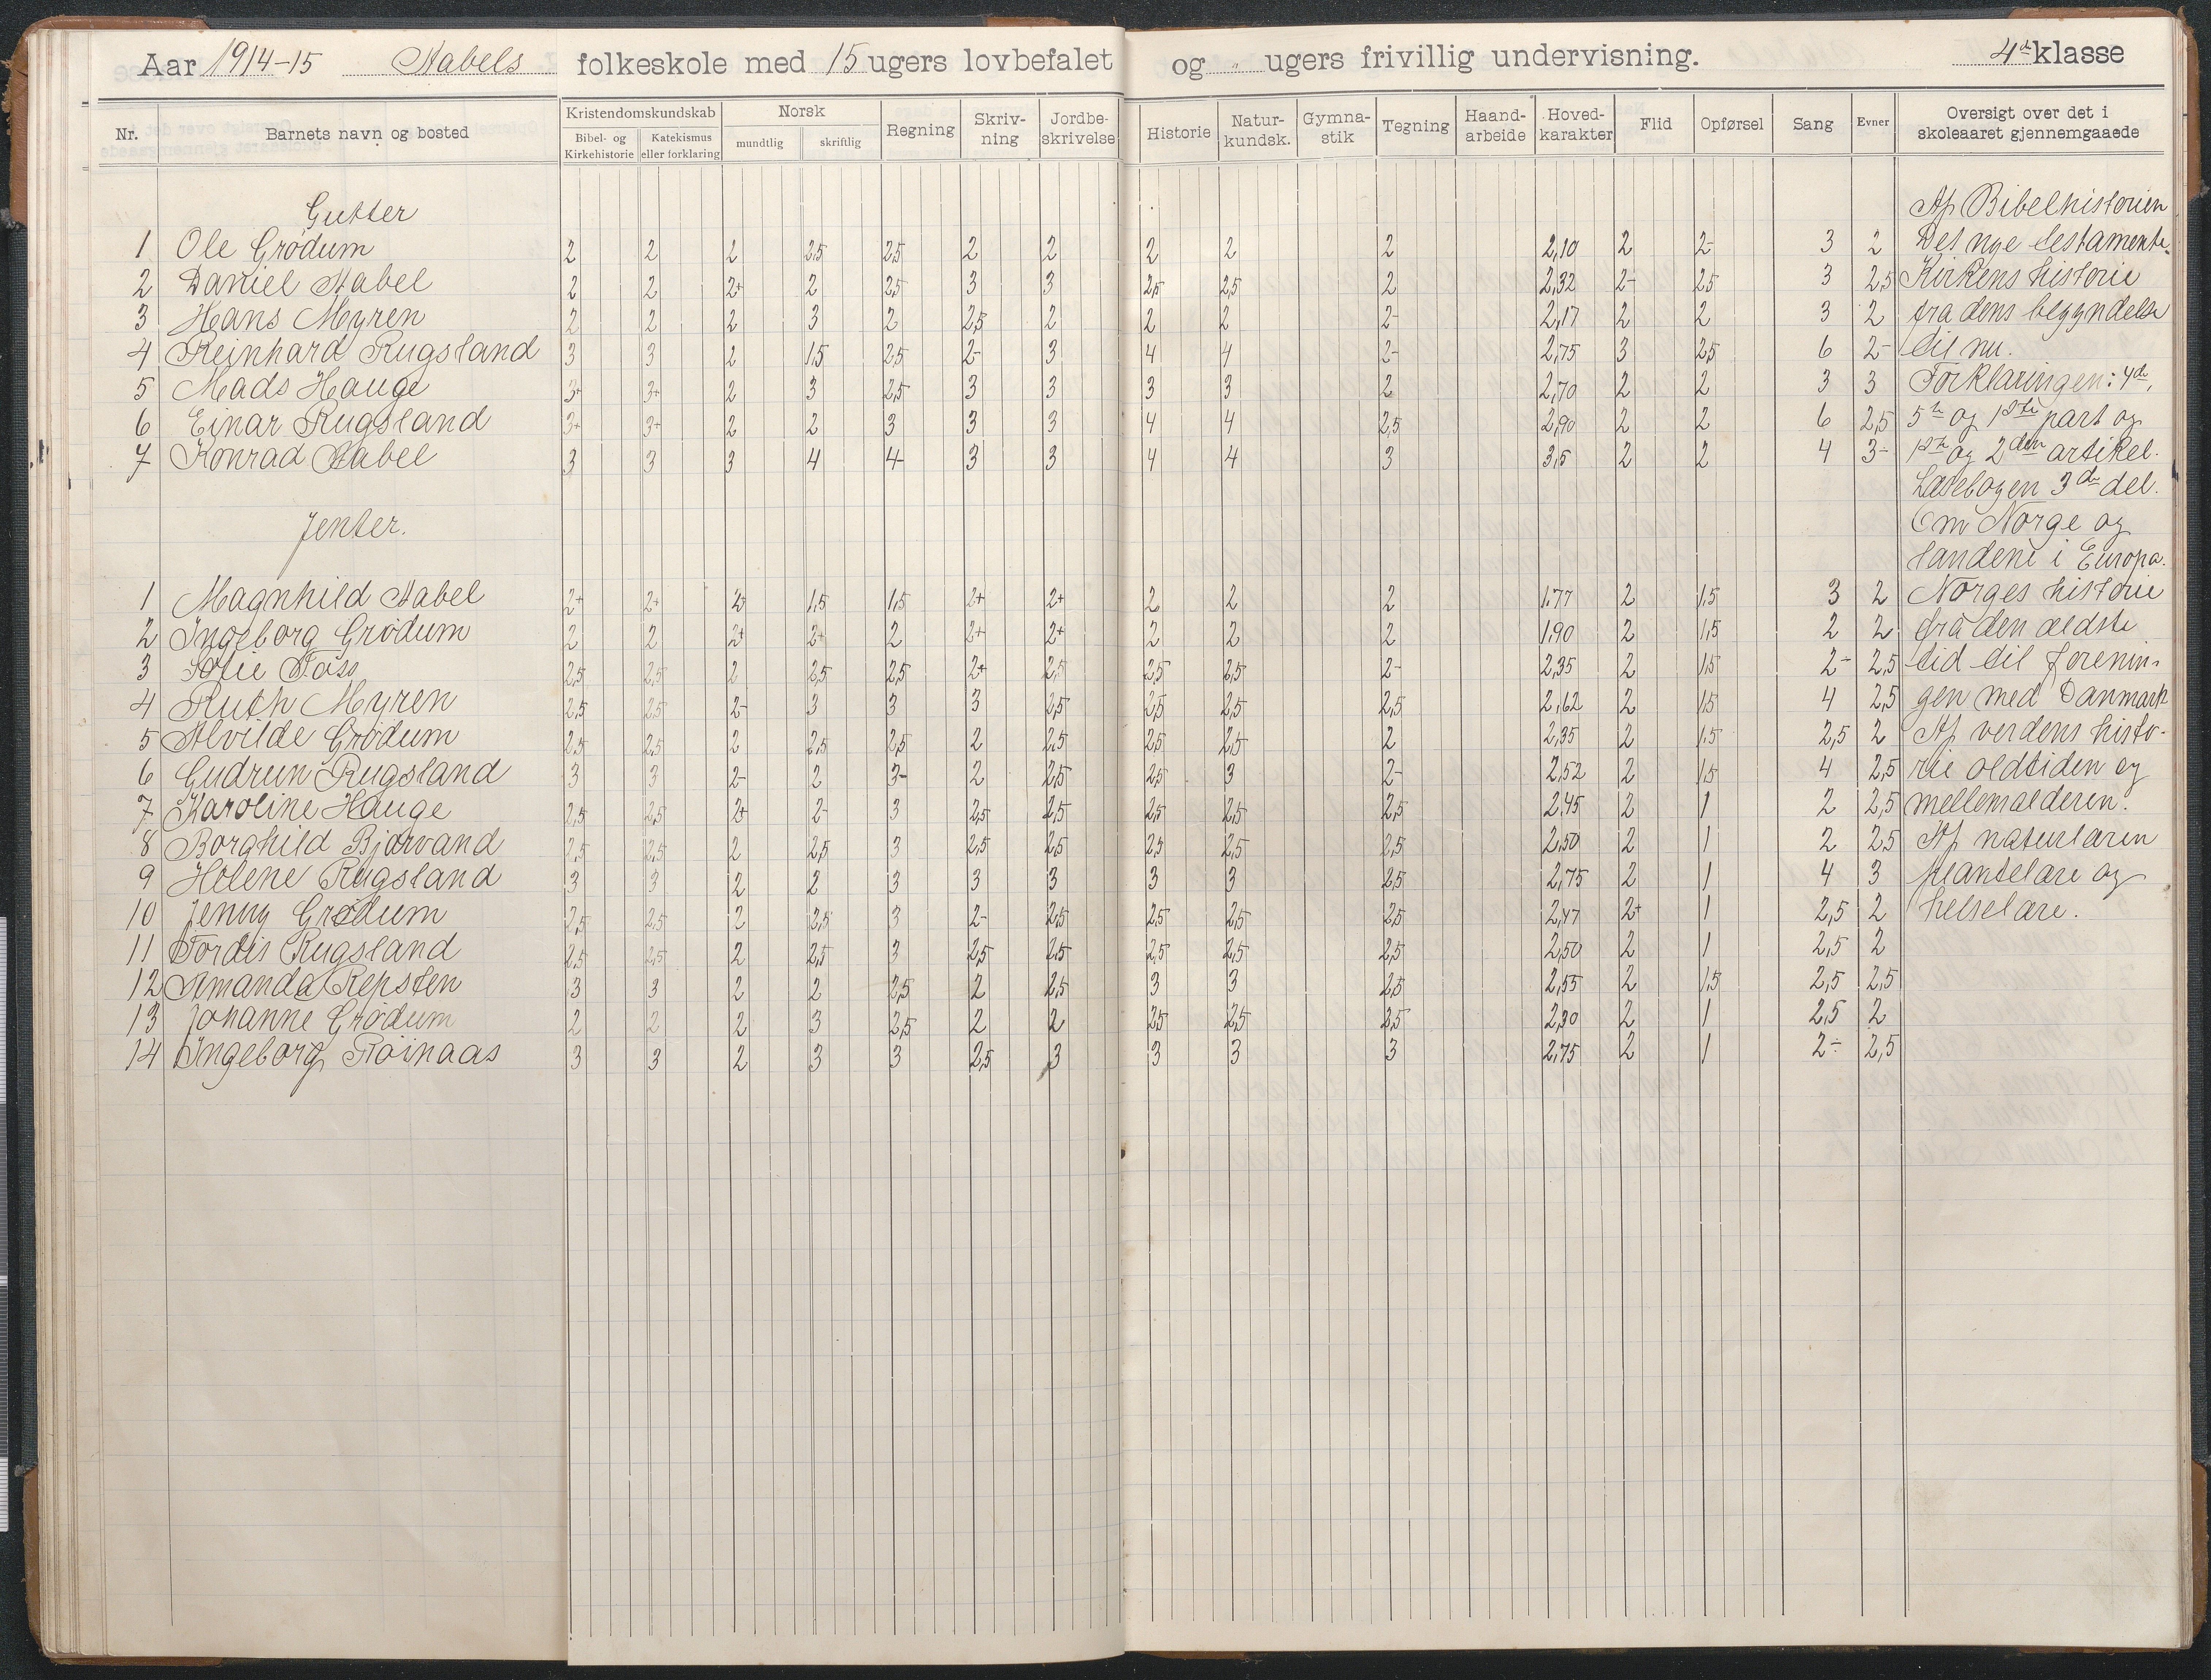 Aar 1914-15 Stabels folkeskole med 15 ugers lovbefalet og " ugers frivillig undervisning. 4de klasse
Nr. Barnets navn og bosted Kristendomskundskab Bibel- og Kirkehistorie Katekismus eller forklaring Norsk mundtlig skriftlig Regning Skriv-ning Jordbe-skrivelse Historie Natur-kundsk. Gymna-stik Tegning Haand-arbeide Hoved-karakter Flid Opførsel Sang Evner Oversigt over det i skoleaaret gjennemgaaede
Gutter Af Bibelhistorien
1 Ole Grødum 2 2 2 2,5 2,5 2 2 2 2 2 2,10 2 2- 3 2 Det nye testamente.
2 Daniel Stabel 2 2 2+ 2 2,5 3 3 2,5 2,5 2 2,32 2- 2,5 3 2,5 Kirkens historie
3 Hans Myren 2 2 2 3 2 2,5 2 2 2 2- 2,17 2 2 3 2 fra dens begyndelse
4 Reinhard Rugsland 3 3 2 1,5 2,5 2- 3 4 4 2- 2,75 3 2,5 6 2- til nu.
5 Mads Hauge 3+ 3+ 2 3 2,5 3 3 3 3 2 2,70 2 2 3 3 Forklaringen: 4de,
6 Einar Rugsland 3+ 3+ 2 2 3 3 3 4 4 2,5 2,90 2 2 6 2,5 5te og 1ste part og
7 Konrad Stabel 3 3 3 4 4- 3 3 4 4 3 3,5 2 2 4 3- 1ste og 2den artikel.
Læsebogen 3de del.
Jenter. Om Norge og
landene i Europa.
1 Magnhild Stabel 2+ 2+ 2+ 1,5 1,5 2+ 2+ 2 2 2 1,77 2 1,5 3 2 Norges historie
2 Ingeborg Grødum 2 2 2+ 2+ 2 2+ 2+ 2 2 2 1,90 2 1,5 2 2 fra den ældste
3 Sofie Foss 2,5 2,5 2 2,5 2,5 2+ 2,5 2,5 2,5 2- 2,35 2 1,5 2- 2,5 tid til forenin-
4 Ruth Myren 2,5 2,5 2- 3 3 3 2,5 2,5 2,5 2,5 2,62 2 1,5 4 2,5 gen med Danmark
5 Alvilde Grødum 2,5 2,5 2 2,5 2,5 2 2,5 2,5 2,5 2 2,35 2 1,5 2,5 2 Af verdens histo-
6 Gudrun Rugsland 3 3 2- 2 3- 2 2,5 2,5 3 2- 2,52 2 1,5 4 2,5 rie oldtiden og
7 Karoline Hauge 2,5 2,5 2+ 2- 3 2,5 2,5 2,5 2,5 2,5 2,45 2 1 2 2,5 mellemalderen.
8 Borghild Bjorvand 2,5 2,5 2 2,5 3 2,5 2,5 2,5 2,5 2,5 2,50 2 1 2 2,5 Af naturlæren
9 Helene Rugsland 3 3 2 2 3 3 3 3 3 2,5 2,75 2 1 4 3 plantelære og
10 Jenny Grødum 2,5 2,5 2 2,5 3 2- 2,5 2,5 2,5 2,5 2,47 2+ 1 2,5 2 helselære.
11 Tordis Rugsland 2,5 2,5 2 2,5 3 2,5 2,5 2,5 2,5 2,5 2,50 2 1 2,5 2
12 Amanda Repsten 3 3 2 2 2,5 2 2,5 3 3 2,5 2,55 2 1,5 2,5 2,5
13 Johanne Grødum 2 2 2 3 2,5 2 2 2,5 2,5 2,5 2,30 2 1 2,5 2
14 Ingeborg Røinaas 3 3 2 3 3 2,5 3 3 3 3 2,75 2 1 2÷ 2,5